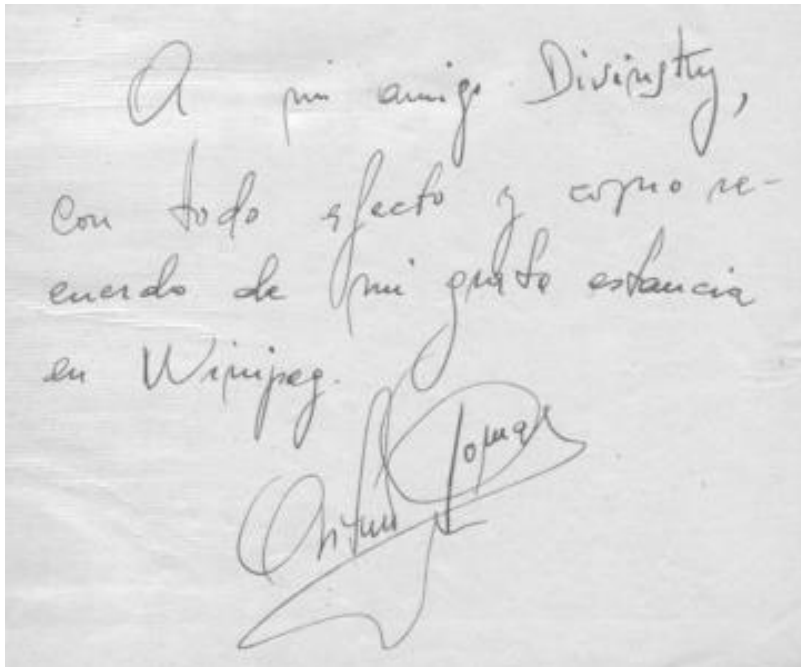 A mi amigo Divinsky,
con todo afecto y como re-
cuerdo de mi grata estancia
en Winipeg.
Arturo Pomar